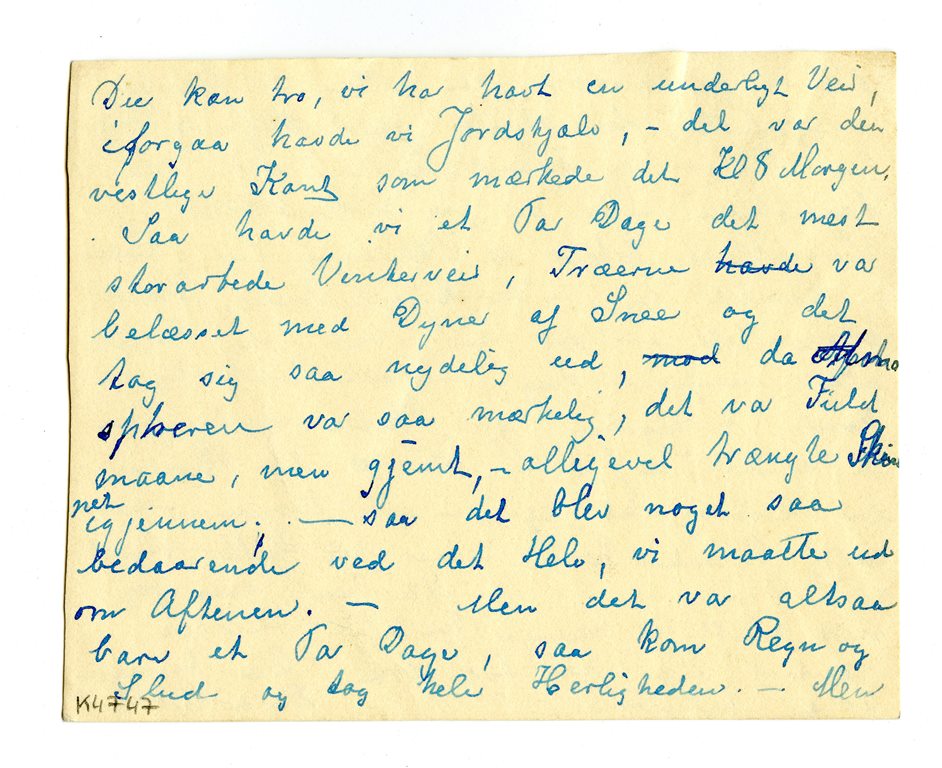 Du kan tro, vi har havt en underligt Veir,
iforgaa havde vi Jordskjælv, – det var den
vestlige Kant som mærkede det Kl 8 Morgen.
Saa havde vi et Par Dage det mest
storartede Vinterveir, Træerne havde var
belæsset med Dyner af Snee og det
tog sig saa nydelig ud, mod da Atmo
sphæren var saa mærkelig, det var Fuld
maane, men gjemt, – alligevel trængte Skin
net
igjennem. – saa det blev noget saa
bedaarende ved det Hele, vi maatte ud
om Aftenen. – Men det var altsaa
bare et Par Dage, saa kom Regn og
Slud og tog hele Herligheden. – Men
K4747